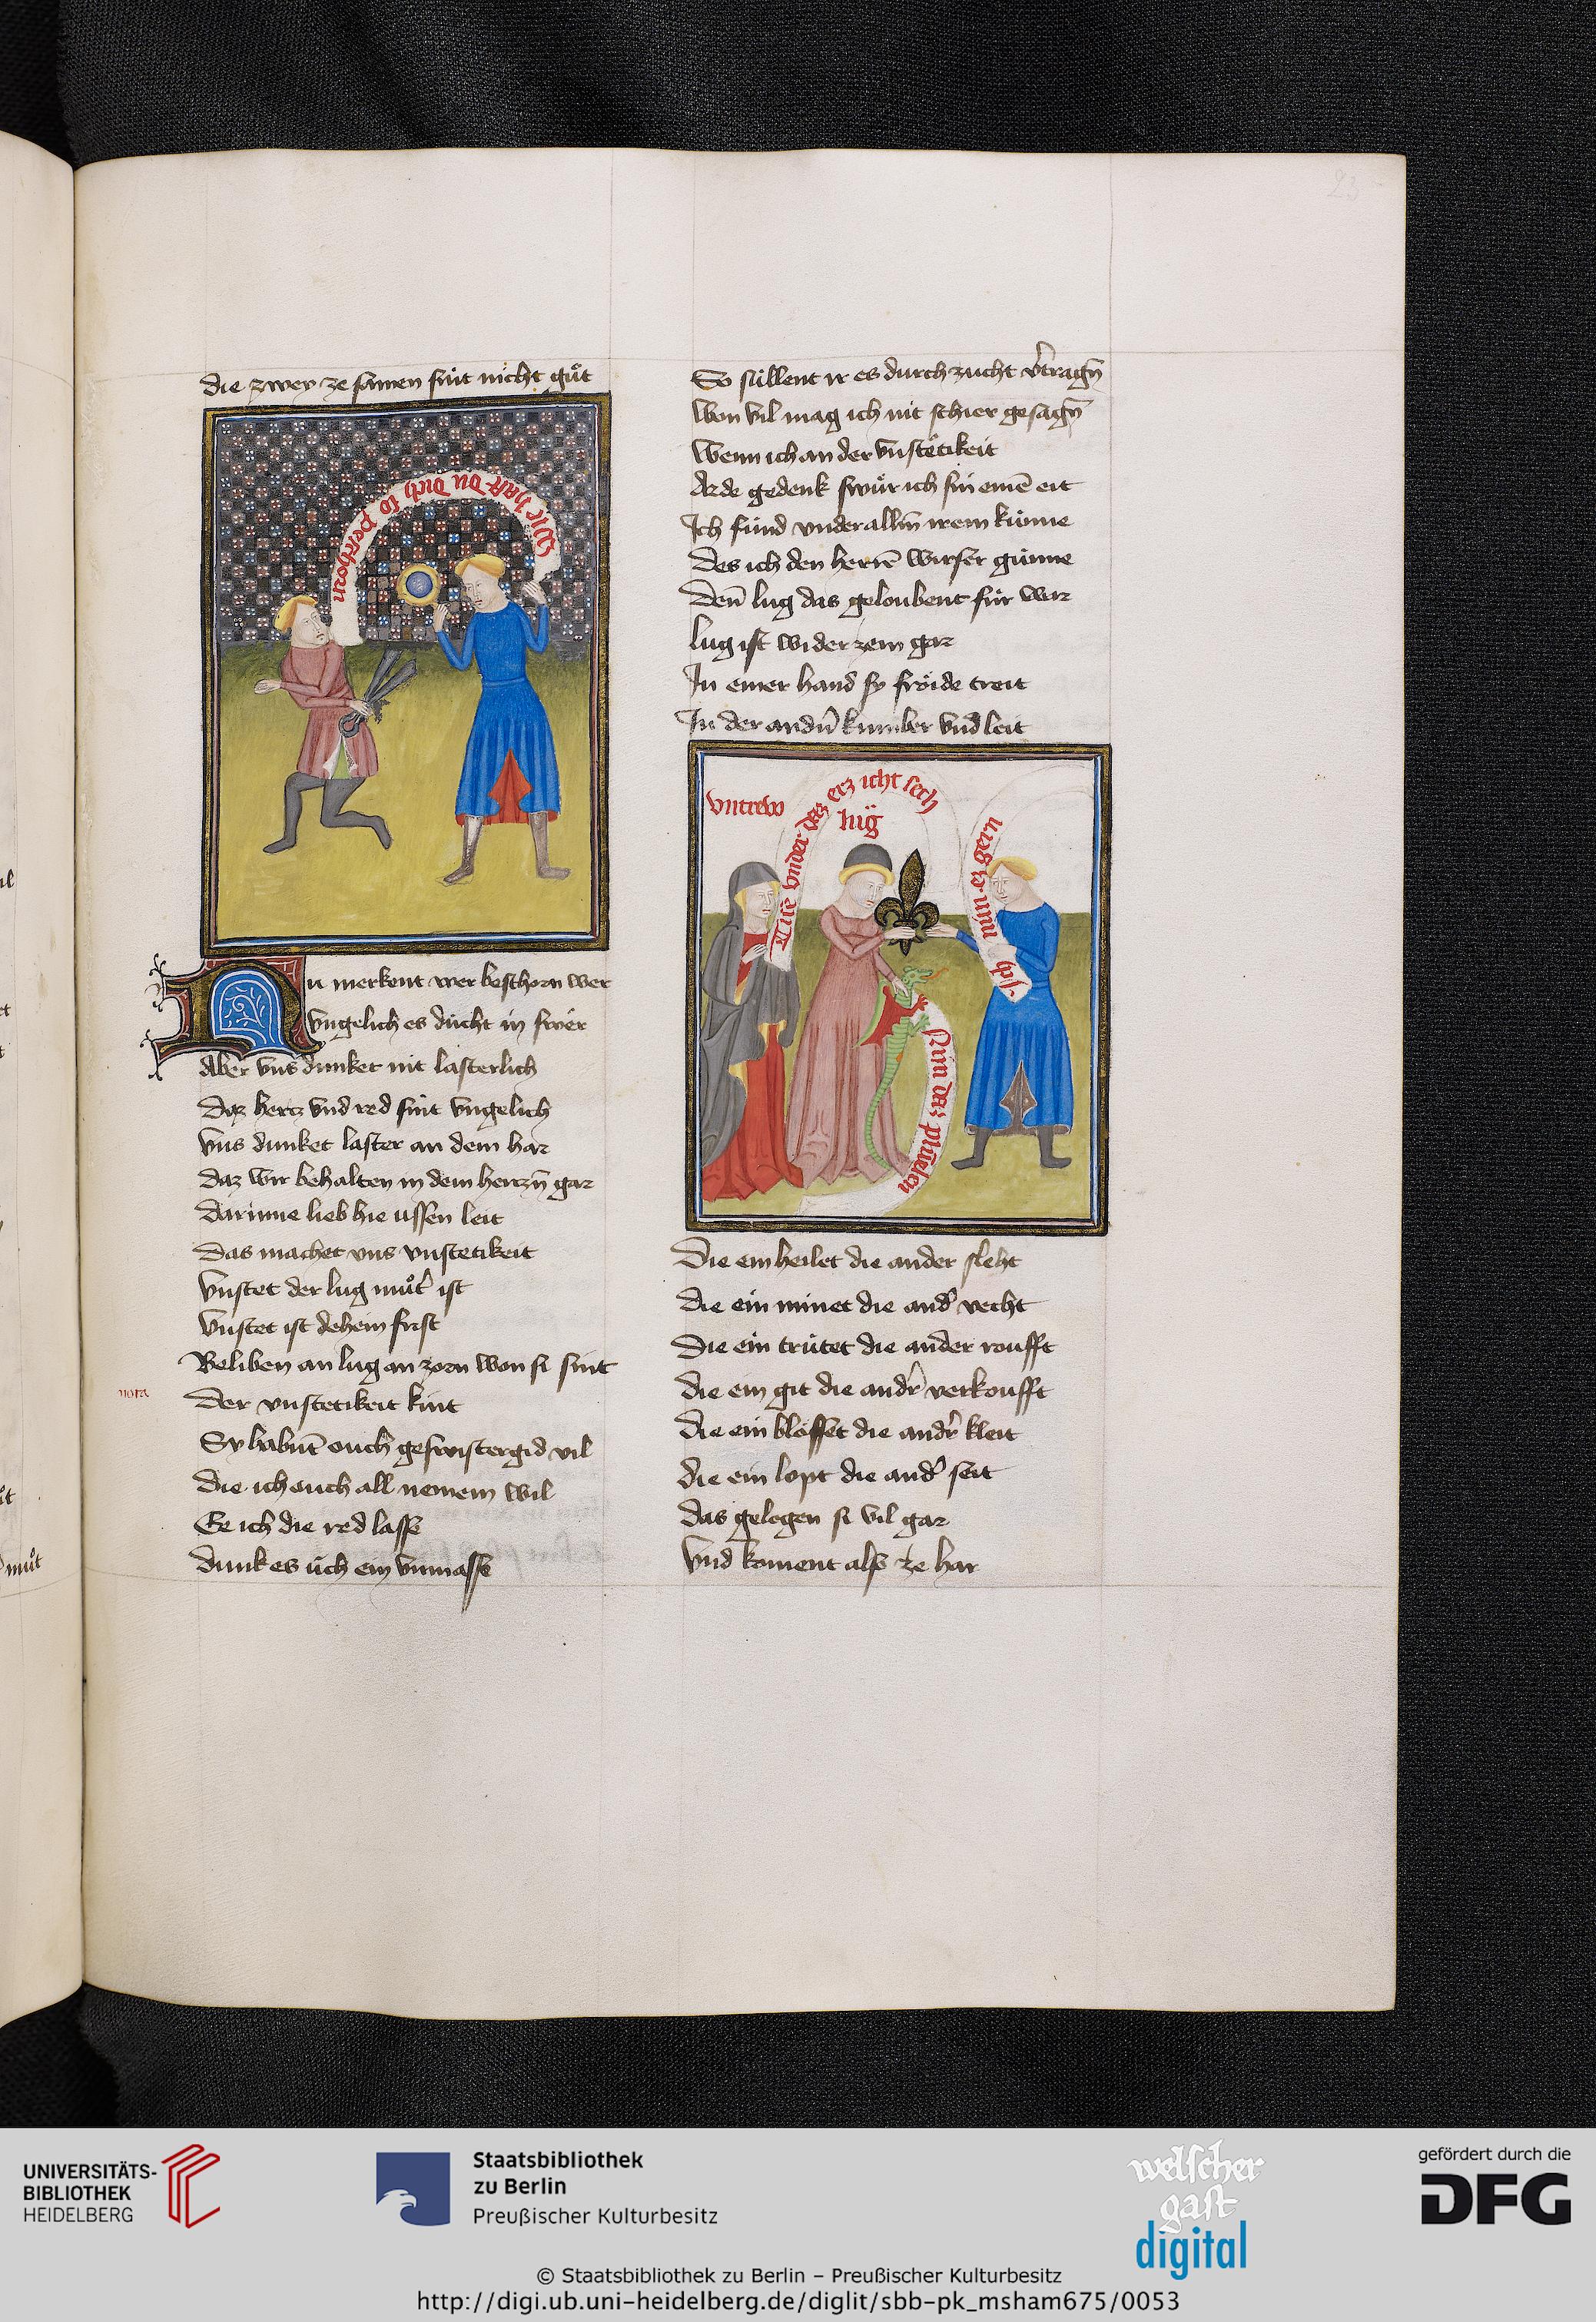 23
die zwey ze samen sint nicht guͦt
Wie hast du dich so peschorn
Nu merkent wer beschorn wer
Vngelich es ducht in swer
Aber vns dunket nit lasterlich
Daz hertz vnd red sint vngelich
Vns dunket laster an dem har
Daz wir behalten in dem hertzn̄ gar
Darinne lieb hie ussen leit
Das machet vns vnstetikeit
Vnstet der lug muͦt̾ ist
Vnstet ist dehein frist
Beliben an lug an zorn won si sint
nota
Der vnstetikeit kint
Sy habnt̄ ouch geswistergid vil
Die ich ouch all nemem wil
Ee ich die red lasse
Dunk es üch ein vnmasse
So süllent ir es durch zucht v̾tragn̄
Won vil mag ich nit schier gesagn̄
Wenn ich an der vnstetikeit
Orde gedenk swuͤr ich sin einē eit
Ich fünd vnder allm̄ irem künne
Des ich den herrē wirser günne
Den̄ lug das geloubent für war
lug ist widerzem gar
In einer hand sy fröide treit
In der andn̾ kumber vnd leit
Vntrew
lüg
Tuͤ vnder daz erz icht sech
Ich nim ez gern
Nim daz pluͤmlen
Die ein heilet die ander sleht
Die ein minet die and̾ vecht
Die ein trütet die ander roufft
die ein git die andr̾ verkoufft
die ein blösset die andr̾ kleit
die ein lopt die and̾ seit
das gelogen si vil gar
Vnd koment also ze har
UNIVERSITÄTS-
BIBLIOTHEK
HEIDELBERG
Staatsbibliothek
zu Berlin
Preußischer Kulturbesitz
welscher
gast
digital
gefördert durch die
DFG
© Staatsbibliothek zu Berlin – Preußischer Kulturbesitz
http://digi.ub.uni-heidelberg.de/diglit/sbb-pk_msham675/0053